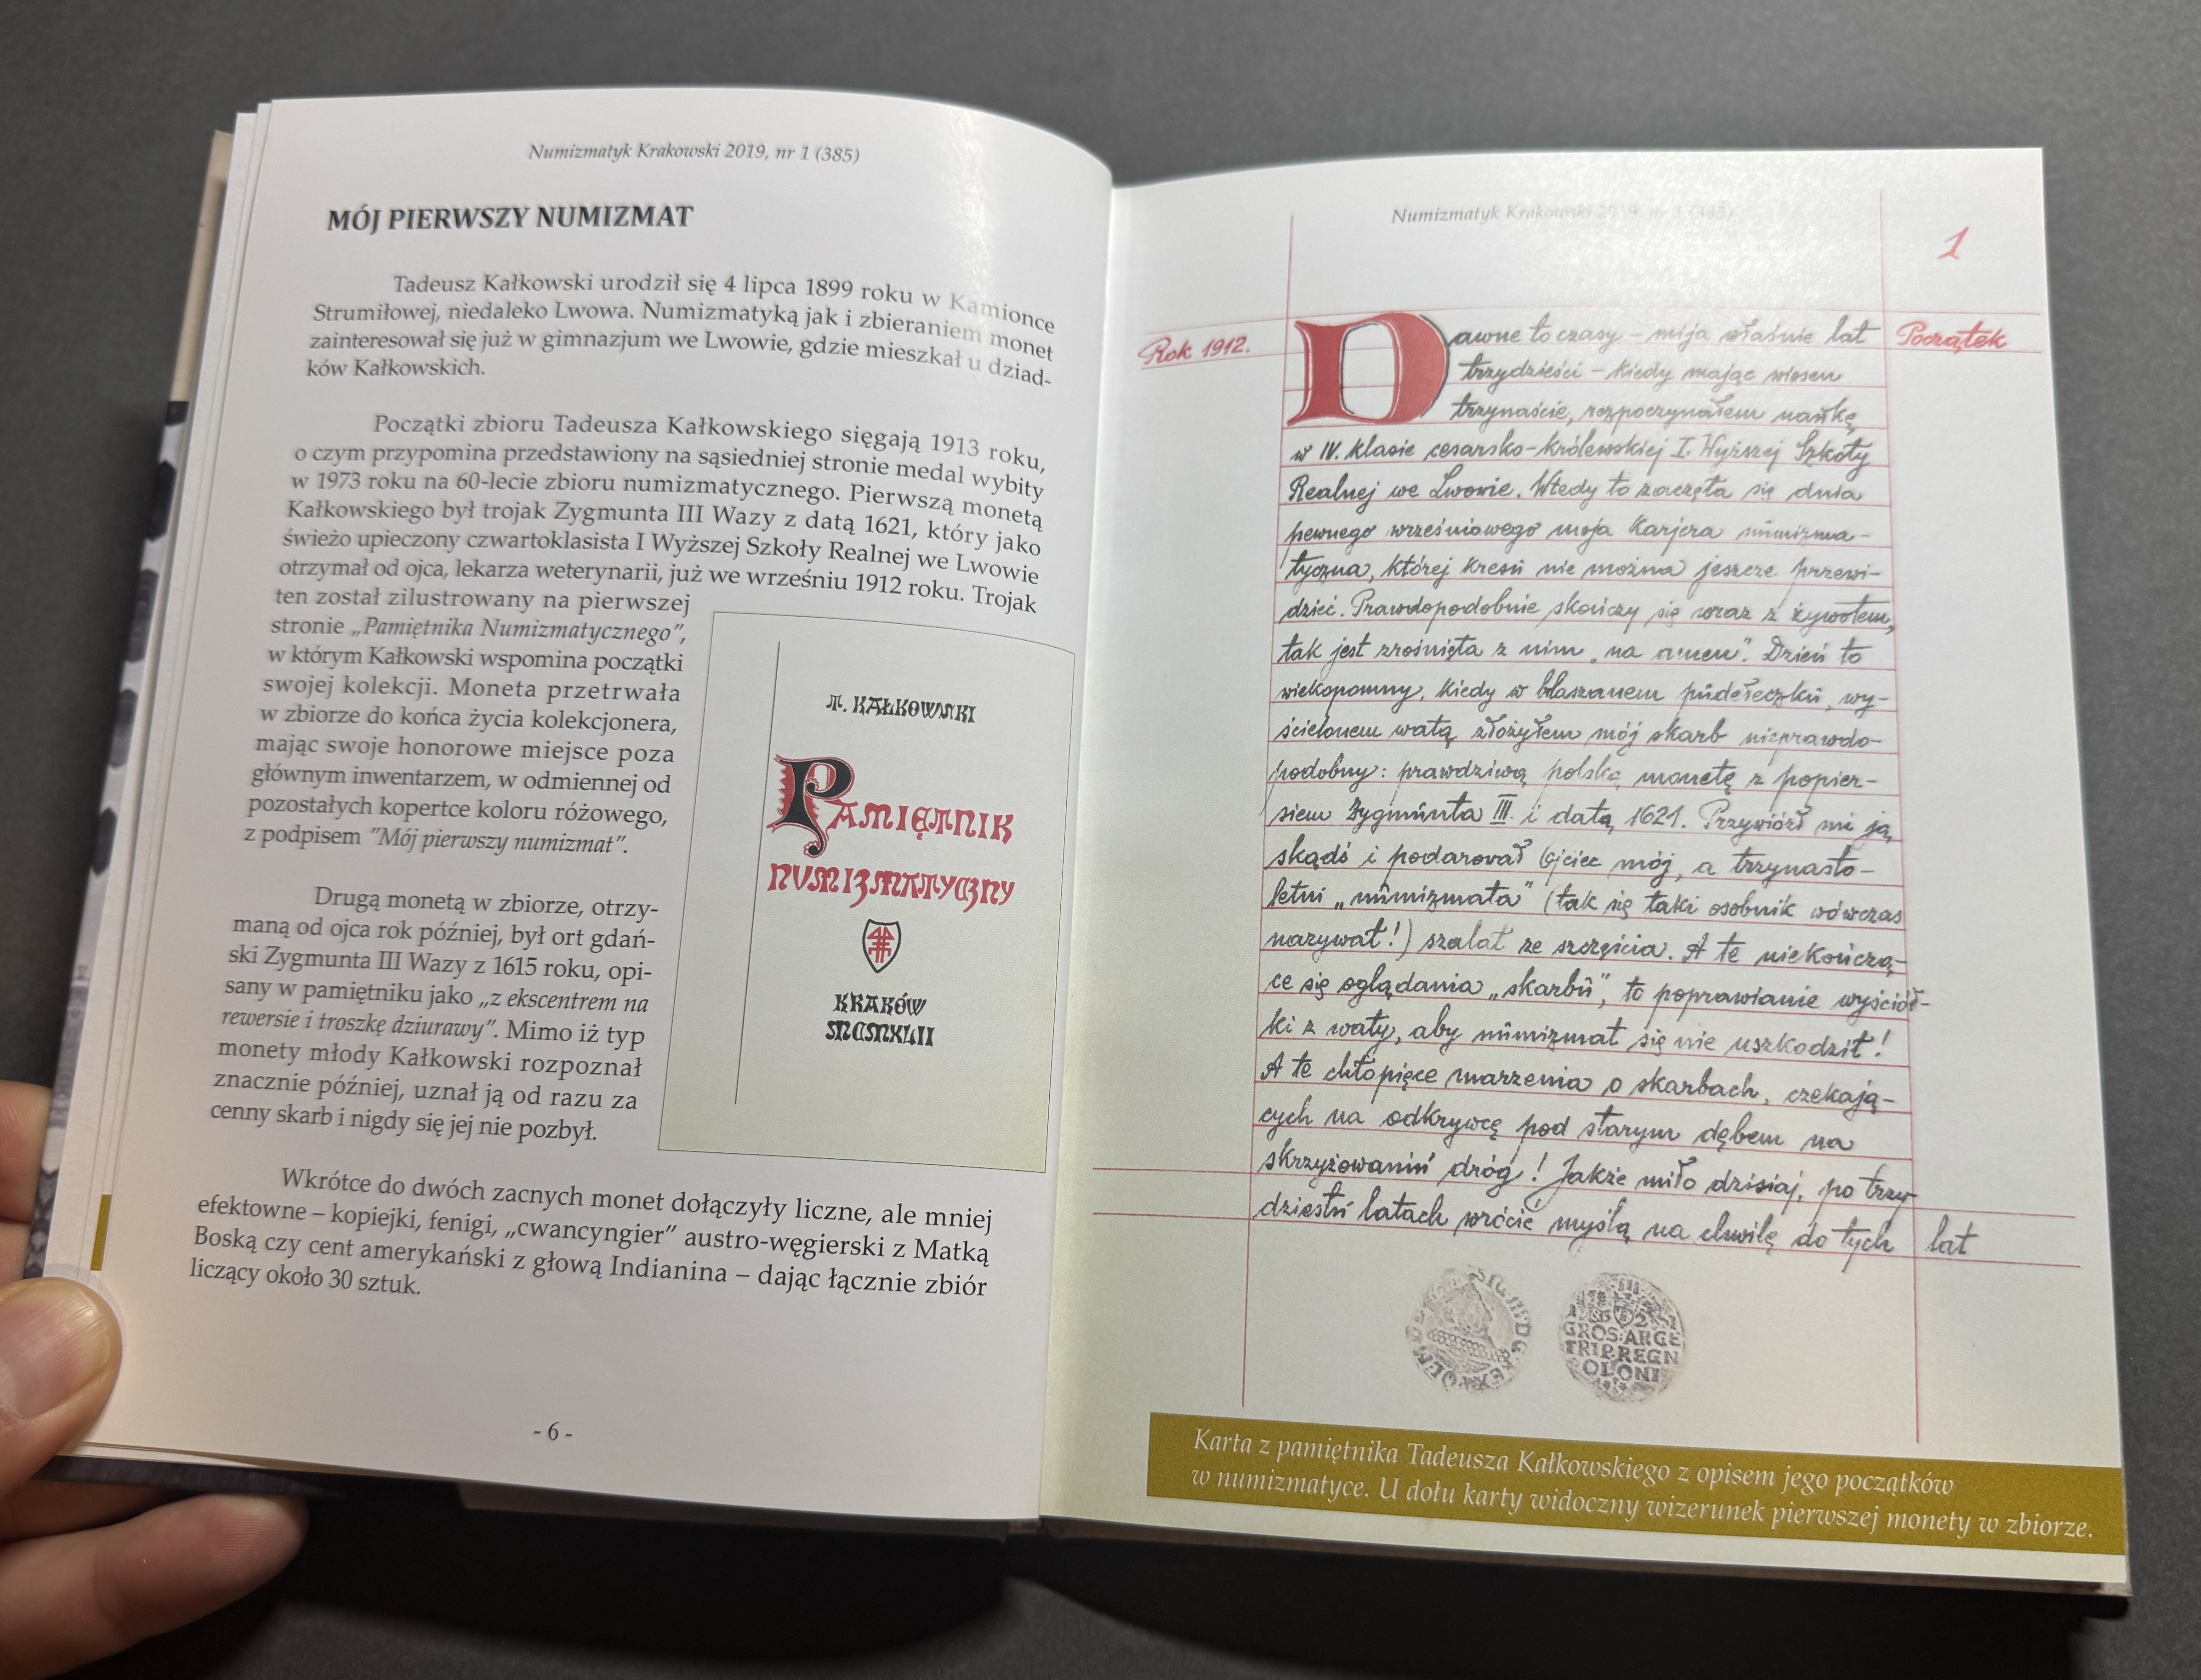 Numizmatyk Krakowski 2019, nr 1 (385)
MÓJ PIERWSZY NUMIZMAT
Tadeusz Kałkowski urodził się 4 lipca 1899 roku w Kamionce
Strumiłowej, niedaleko Lwowa. Numizmatyką jak i zbieraniem monet
zainteresował się już w gimnazjum we Lwowie, gdzie mieszkał u dziad-
ków Kałkowskich.
Początki zbioru Tadeusza Kałkowskiego sięgają 1913 roku,
o czym przypomina przedstawiony na sąsiedniej stronie medal wybity
w 1973 roku na 60-lecie zbioru numizmatycznego. Pierwszą monetą
Kałkowskiego był trojak Zygmunta III Wazy z datą 1621, który jako
świeżo upieczony czwartoklasista I Wyższej Szkoły Realnej we Lwowie
otrzymał od ojca, lekarza weterynarii, już we wrześniu 1912 roku. Trojak
ten został zilustrowany na pierwszej
stronie „Pamiętnika Numizmatycznego”,
w którym Kałkowski wspomina początki
swojej kolekcji. Moneta przetrwała
w zbiorze do końca życia kolekcjonera,
mając swoje honorowe miejsce poza
głównym inwentarzem, w odmiennej od
pozostałych kopertce koloru różowego,
z podpisem "Mój pierwszy numizmat".
Drugą monetą w zbiorze, otrzy-
maną od ojca rok później, był ort gdań-
ski Zygmunta III Wazy z 1615 roku, opi-
sany w pamiętniku jako „z ekscentrem na
rewersie i troszkę dziurawy”. Mimo iż typ
monety młody Kałkowski rozpoznał
znacznie później, uznał ją od razu za
cenny skarb i nigdy się jej nie pozbył.
Wkrótce do dwóch zacnych monet dołączyły liczne, ale mniej
efektowne – kopiejki, fenigi, „cwancyngier” austro-węgierski z Matką
Boską czy cent amerykański z głową Indianina – dając łącznie zbiór
liczący około 30 sztuk.
T. KAŁKOWSKI
PAMIĘTNIK
NUMIZMATYCZNY
KRAKÓW
MCMXLII
- 6 -
Numizmatyk Krakowski 2019, nr 1 (385)
1
Rok 1912.
Początek
Dawne to czasy – mija właśnie lat
trzydzieści – kiedy mając wiosen
trzynaście, rozpoczynałem naukę
w IV. klasie cesarsko-królewskiej I. Wyższej Szkoły
Realnej we Lwowie. Wtedy to zaczęła się dnia
pewnego wrześniowego moja karjera numizma-
tyczna, której kresu nie można jeszcze przewi-
dzieć. Prawdopodobnie skończy się wraz z żywotem,
tak jest zrośnięta z nim „na amen”. Dzień to
wiekopomny, kiedy w blaszanem pudełeczku, wy-
ścielonem watą złożyłem mój skarb nieprawdo-
podobny: prawdziwą polską monetę z popier-
siem Zygmunta III. i datą 1621. Przywiózł mi ją
skądś i podarował Ojciec mój, a trzynasto-
letni „numizmata” (tak się taki osobnik wówczas
nazywał!) szalał ze szczęścia. A te niekończą-
ce się oglądania „skarbu”, to poprawianie wyściół-
ki z waty, aby numizmat się nie uszkodził!
A te chłopięce marzenia o skarbach, czekają-
cych na odkrywcę pod starym dębem na
skrzyżowaniu dróg! Jakże miło dzisiaj, po trzy-
dziestu latach wrócić myślą na chwilę do tych lat
GROS·ARGE
TRIP·REGN
OLONI
Karta z pamiętnika Tadeusza Kałkowskiego z opisem jego początków
w numizmatyce. U dołu karty widoczny wizerunek pierwszej monety w zbiorze.